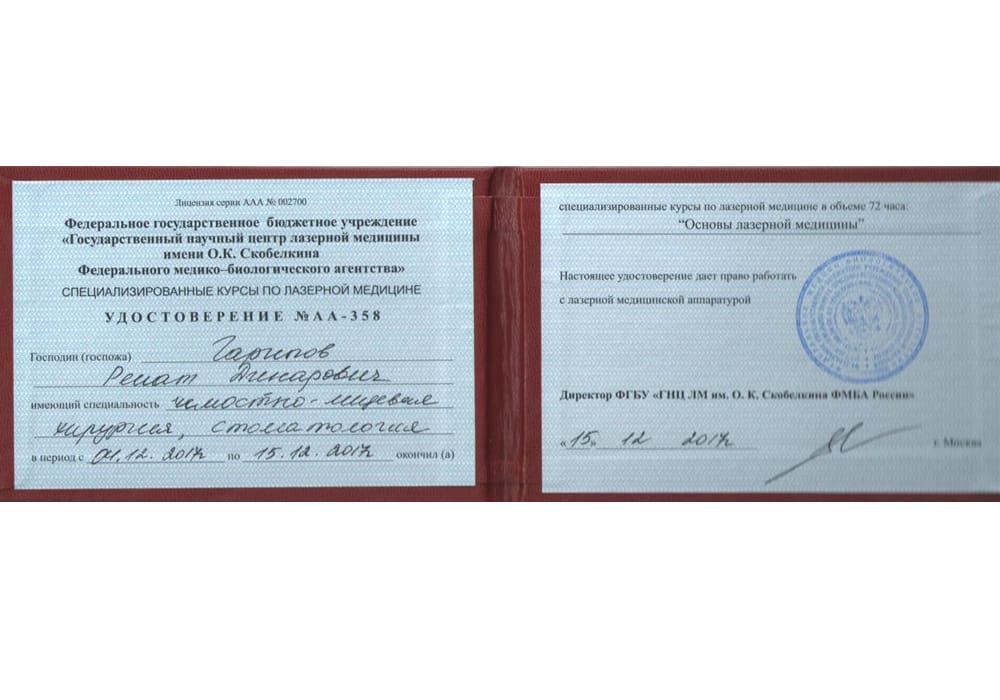 Лицензия серии ААА № 002700
Федеральное государственное бюджетное учреждение
«Государственный научный центр лазерной медицины
имени О.К. Скобелкина
Федерального медико–биологического агентства»
СПЕЦИАЛИЗИРОВАННЫЕ КУРСЫ ПО ЛАЗЕРНОЙ МЕДИЦИНЕ
УДОСТОВЕРЕНИЕ №АА-358
Господин (госпожа) Гарипов
Ренат Динарович
имеющий специальность челюстно-лицевая
хирургия, стоматология
в период с 04.12.2017г по 15.12.2017г окончил (а)
специализированные курсы по лазерной медицине в объеме 72 часа:
“Основы лазерной медицины”
Настоящее удостоверение дает право работать
с лазерной медицинской аппаратурой
Директор ФГБУ «ГНЦ ЛМ им. О. К. Скобелкина ФМБА России»
«15» 12 2017г г. Москва